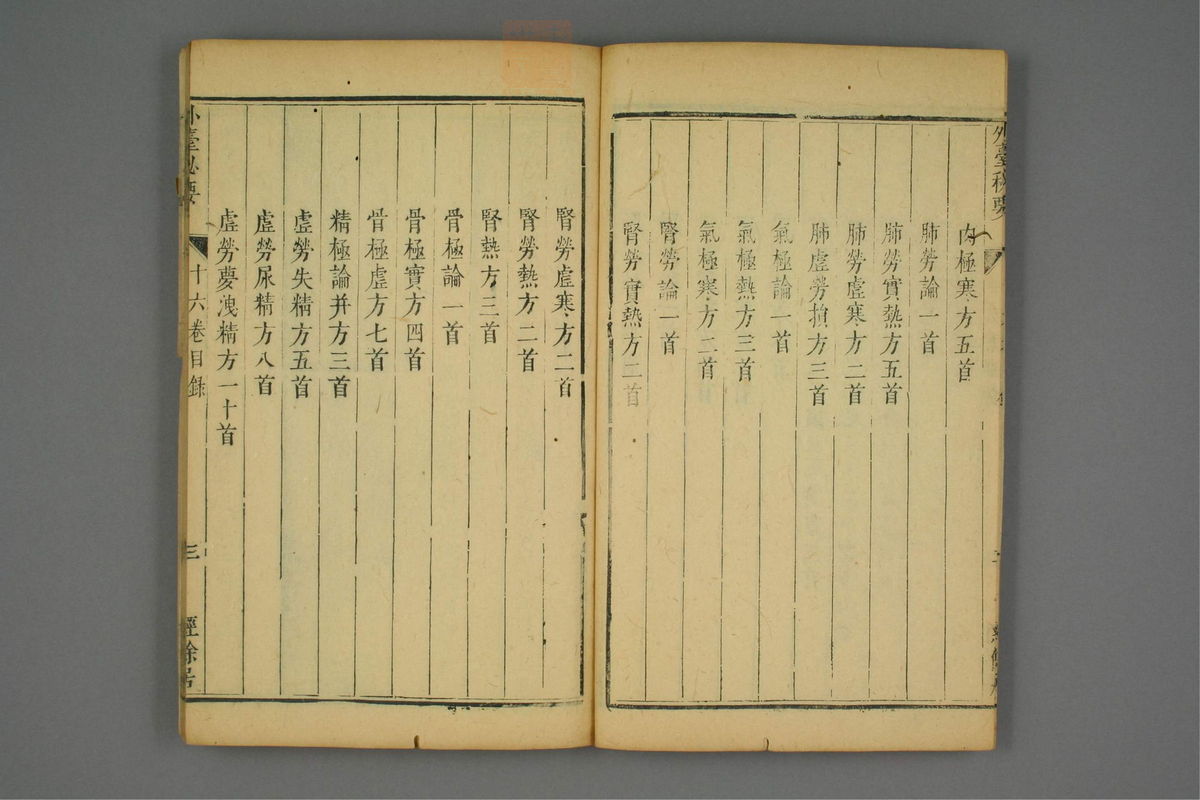 外臺秘要
肉極寒方五首
肺勞論一首
肺勞實熱方五首
肺勞虛寒方二首
肺虛勞損方三首
氣極論一首
氣極熱方三首
氣極寒方二首
腎勞論一首
腎勞實熱方二首
腎勞虛寒方二首
腎勞熱方二首
腎熱方三首
骨極論一首
骨極實方四首
骨極虛方七首
精極論并方三首
虛勞失精方五首
虛勞尿精方八首
虛勞夢洩精方一十首
外臺秘要 十六卷目錄 三 經餘居